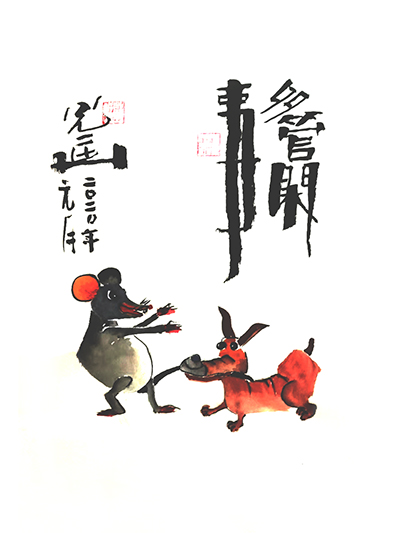 多管閑
事
二〇二〇年
元月